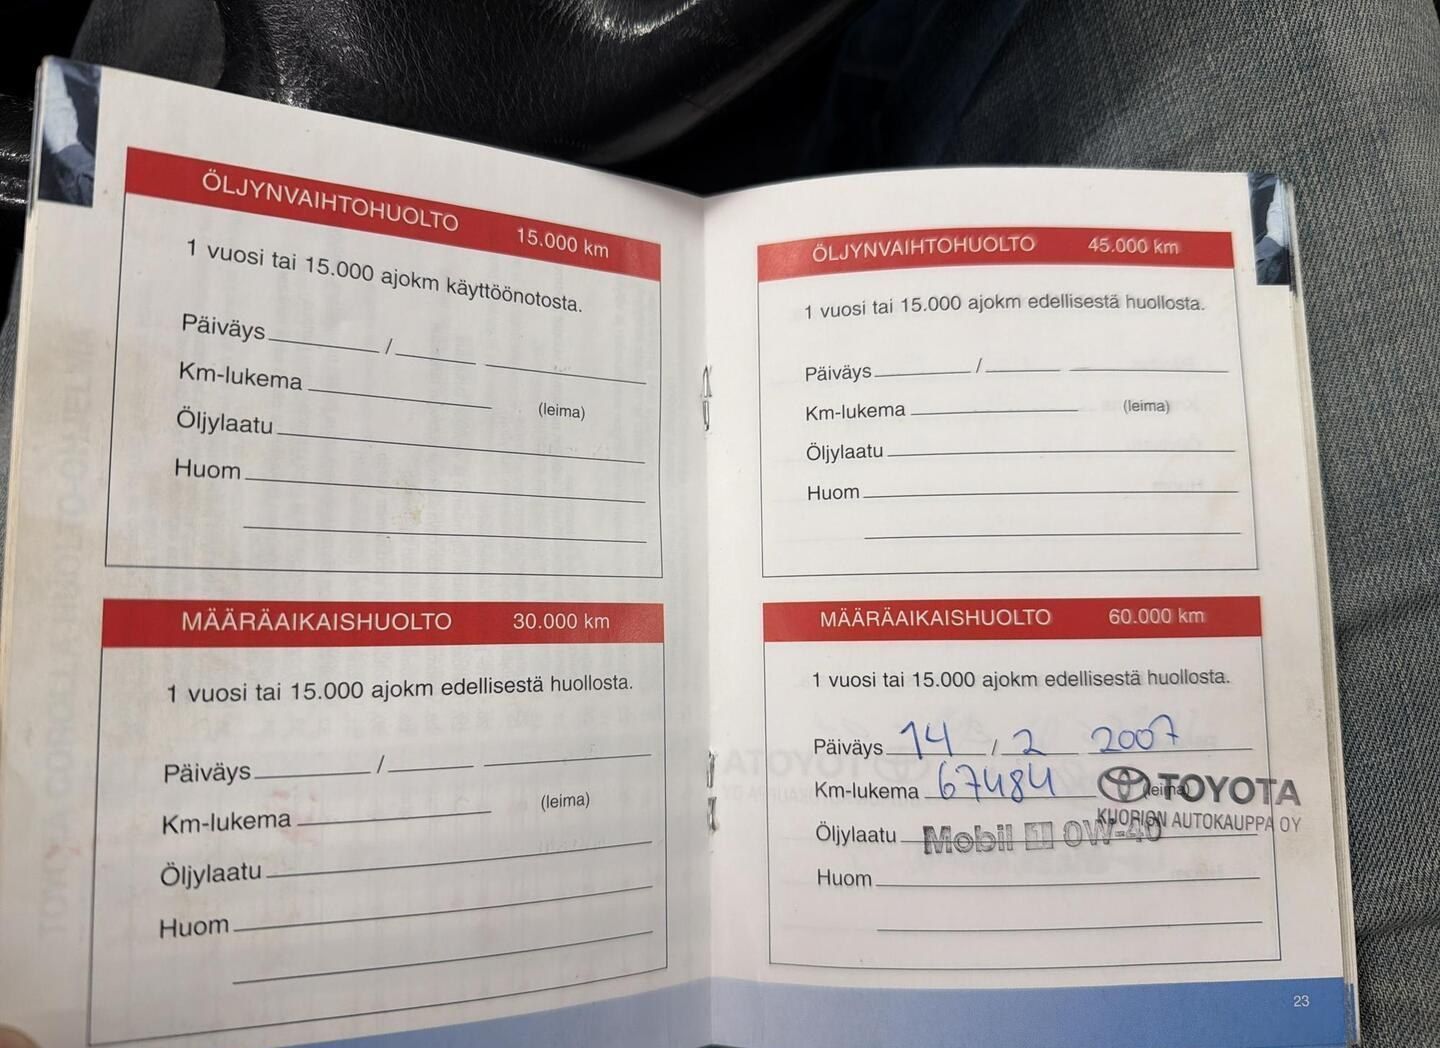 ÖLJYNVAIHTOHUOLTO 15.000 km
1 vuosi tai 15.000 ajokm käyttöönotosta.
Päiväys / 
Km-lukema (leima)
Öljylaatu
Huom
MÄÄRÄAIKAISHUOLTO 30.000 km
1 vuosi tai 15.000 ajokm edellisestä huollosta.
Päiväys /
Km-lukema (leima)
Öljylaatu
Huom
ÖLJYNVAIHTOHUOLTO 45.000 km
1 vuosi tai 15.000 ajokm edellisestä huollosta.
Päiväys /
Km-lukema (leima)
Öljylaatu
Huom
MÄÄRÄAIKAISHUOLTO 60.000 km
1 vuosi tai 15.000 ajokm edellisestä huollosta.
Päiväys 14 / 2 2007
Km-lukema 67484 (leima) TOYOTA
KUORION AUTOKAUPPA OY
Öljylaatu Mobil 1 0W-40
Huom
23